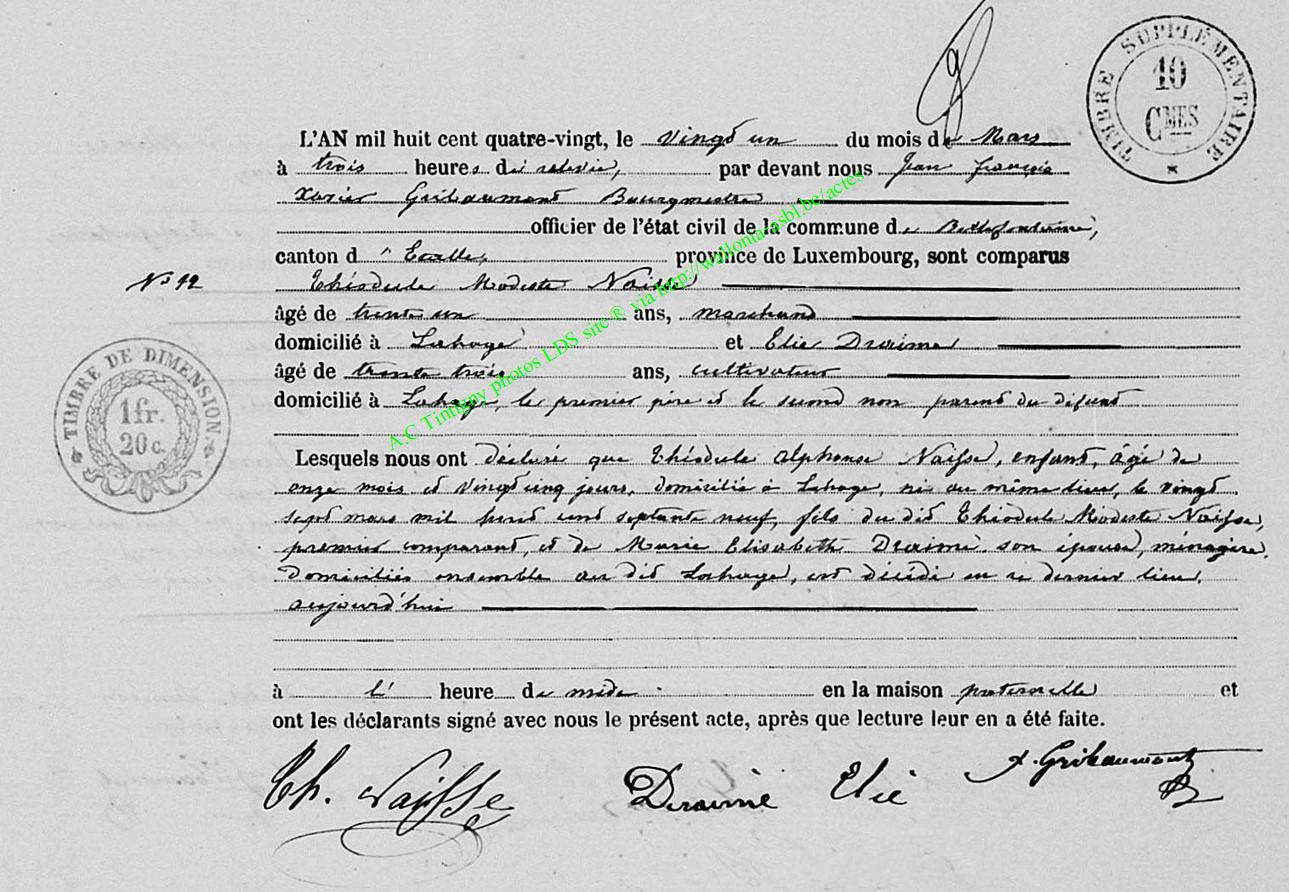 TIMBRE SUPPLÉMENTAIRE
10
CMES
L'AN mil huit cent quatre-vingt, le vingt un du mois de Mars
à trois heures de relevée, par devant nous Jean françois
Xavier Gribaumont Bourgmestre
officier de l'état civil de la commune de Bellefontaine,
canton d'Etalle, province de Luxembourg, sont comparus
No 12
Théodule Modeste Naisse
âgé de trente un ans, marchand
domicilié à Lahage et Elie Deraimé
âgé de trente trois ans, cultivateur
domicilié à Lahage, le premier père et le second non parent du défunt
TIMBRE DE DIMENSION
1 fr.
20 c.
A.C Tintigny photos LDS site ® via http://wallonia-asbl.be/acres
Lesquels nous ont déclaré que Théodule alphonse Naisse, enfant, âgé de
onze mois et vingt cinq jours, domicilié à Lahage, né au même lieu, le vingt
sept mars mil huit cent septante neuf, fils du dit Théodule Modeste Naisse,
premier comparant, et de Marie Elisabeth Deraimé son épouse, ménagère,
domiciliés ensemble au dit Lahage, est décédé en ce dernier lieu,
aujourd'hui
à l' heure de midi en la maison paternelle et
ont les déclarants signé avec nous le présent acte, après que lecture leur en a été faite.
Th. Naisse Deraimé Elie X. Gribaumont